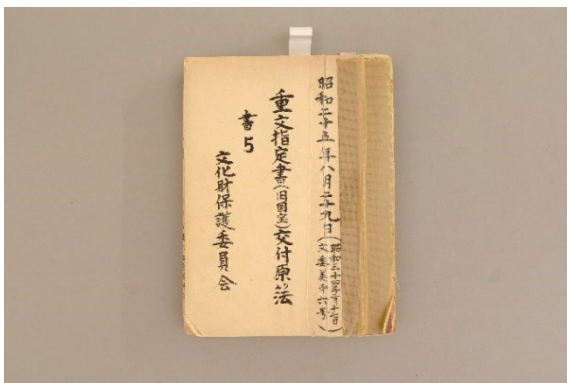 昭和二十五年八月二十九日
昭和三十四年
文委美第六号
重文指定書(旧国宝)交付原
書5
文化財保護委員会